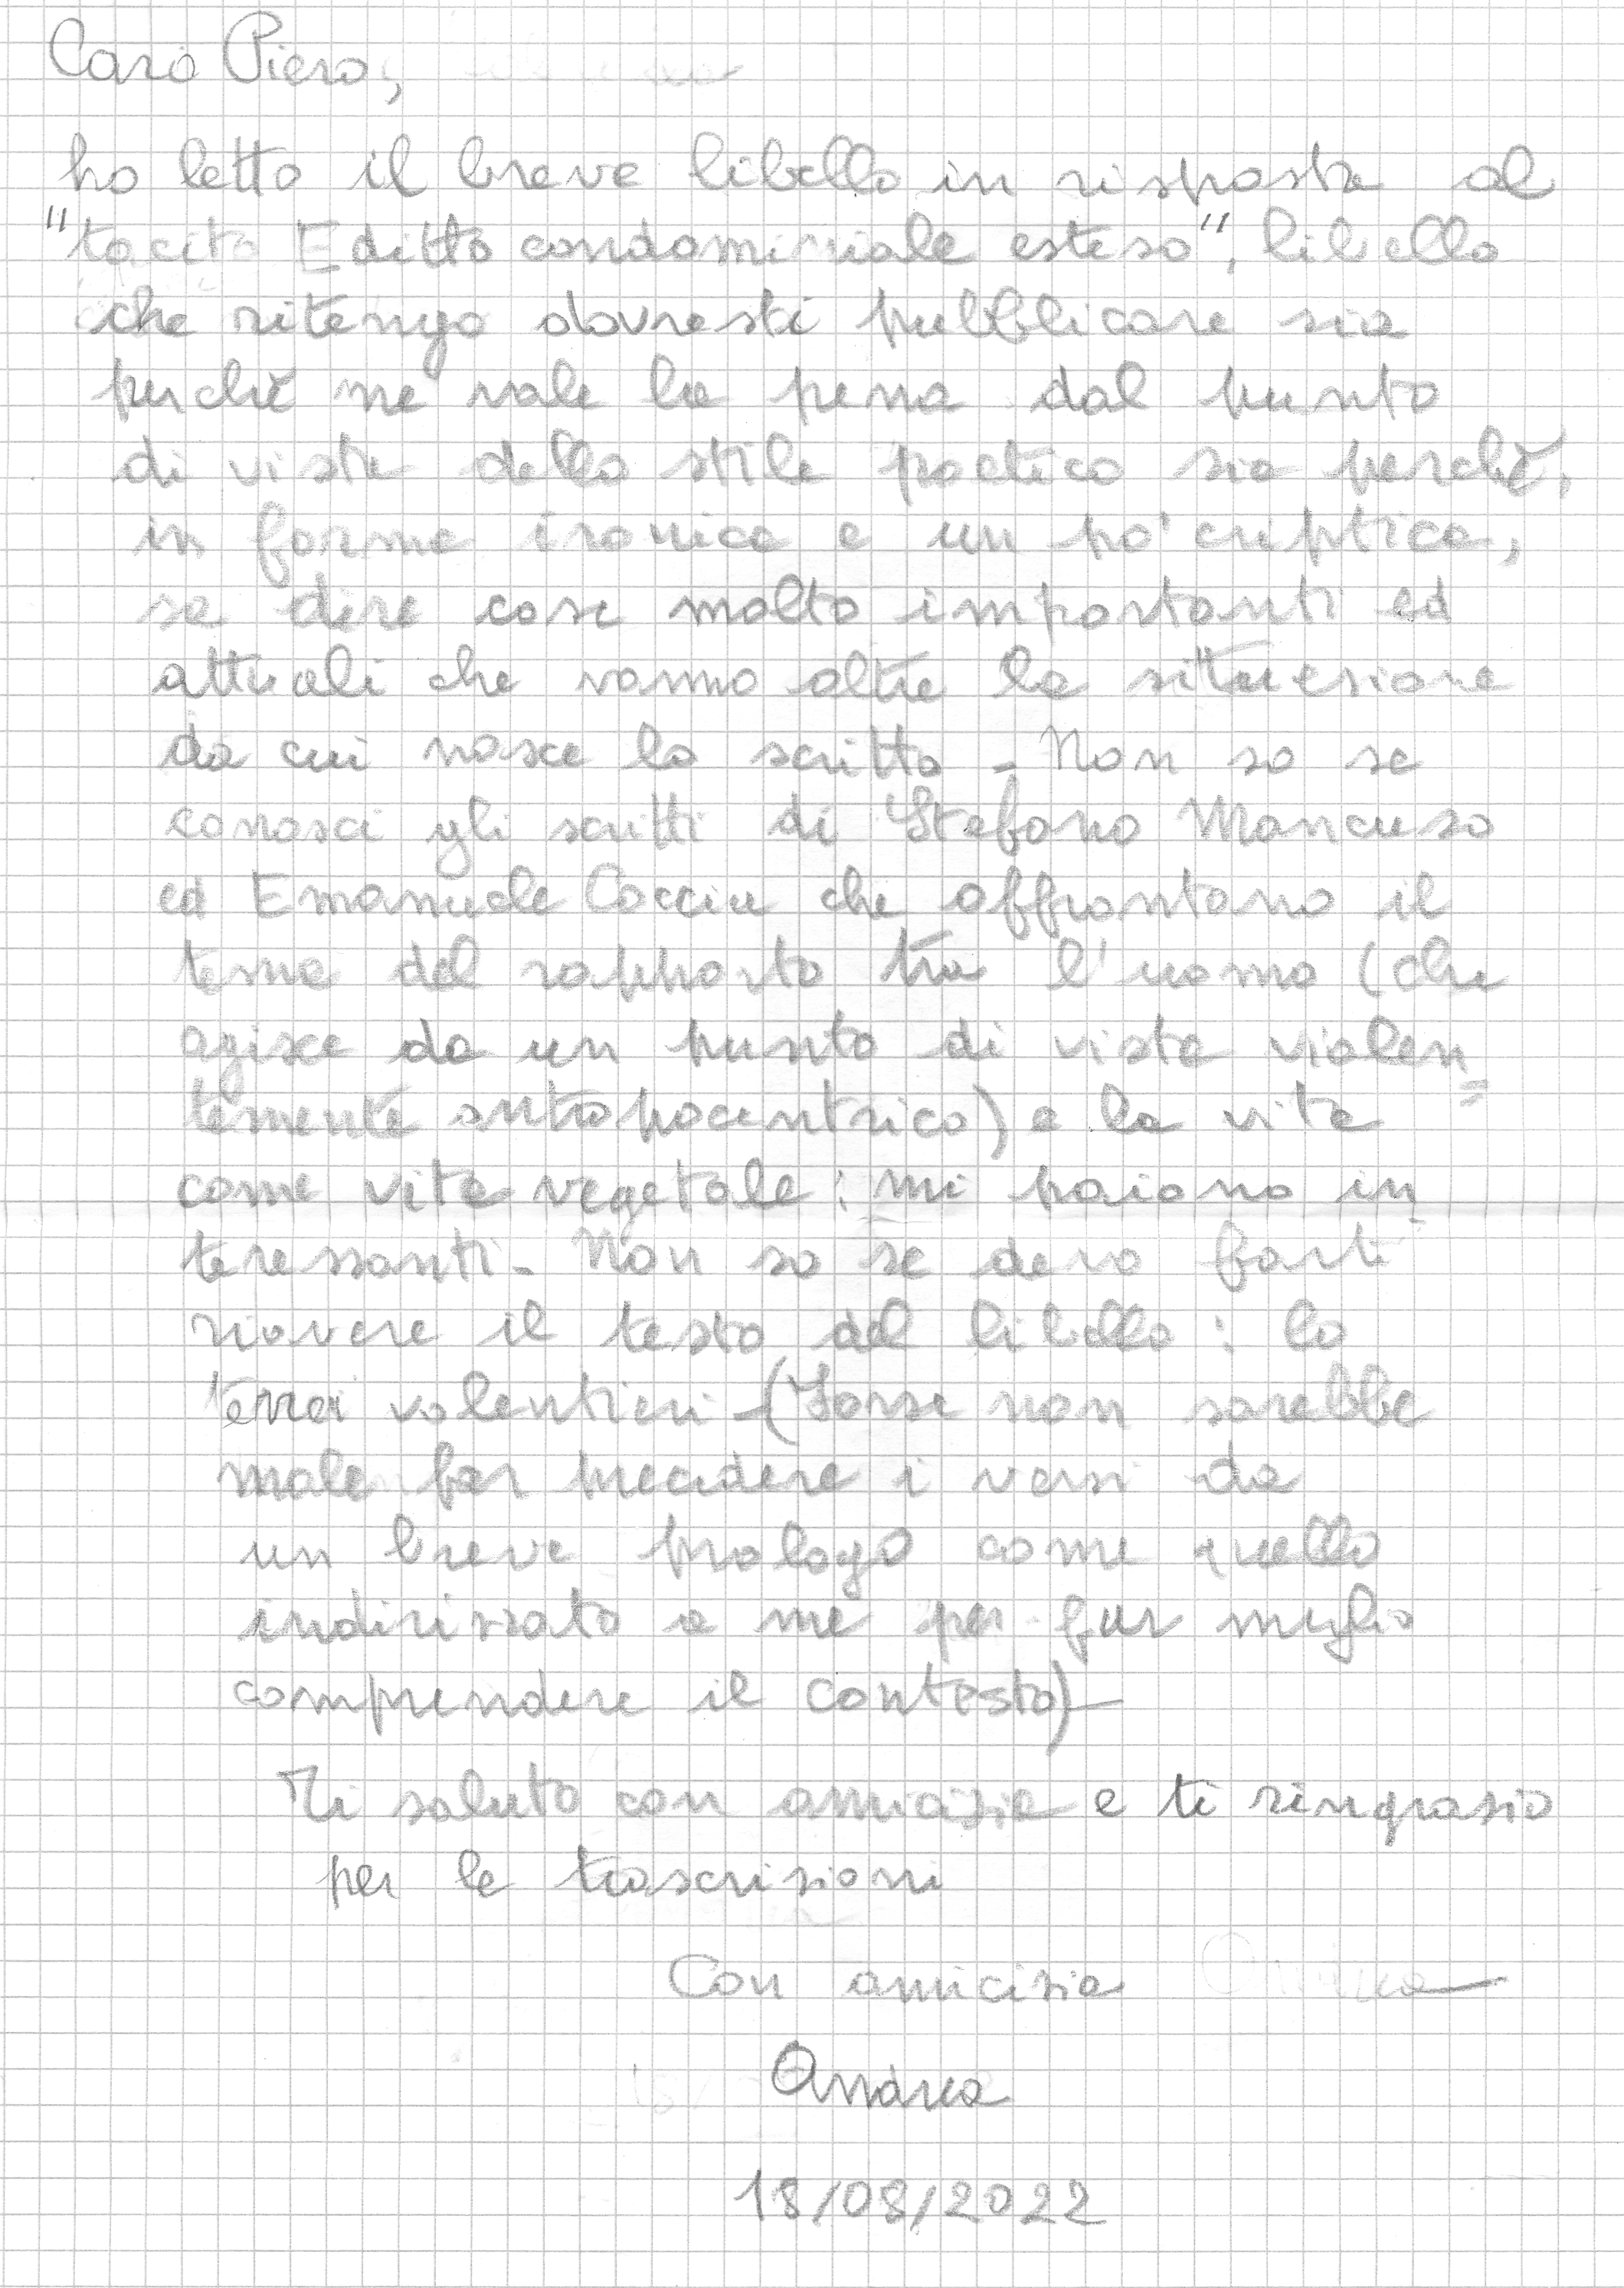 Caro Piero,
ho letto il breve libello in risposta al
"tacito Editto condominiale esteso", libello
che ritengo dovresti pubblicare sia
perchè ne vale la pena dal punto
di vista dello stile poetico sia perchè,
in forma ironica e un po' criptica,
sa dire cose molto importanti ed
attuali che vanno oltre la situazione
da cui nasce lo scritto - Non so se
conosci gli scritti di Stefano Mancuso
ed Emanuele Coccia che affrontano il
tema del rapporto tra l'uomo (che
agisce da un punto di vista violen=
temente antropocentrico) e la vita
come vita vegetale: mi paiono in
teressanti - Non so se devo farti
riavere il testo del libello: lo
terrei volentieri - (Forse non sarebbe
male far precedere i versi da
un breve prologo come quello
indirizzato a me per far meglio
comprendere il contesto) -
Ti saluto con amicizia e ti ringrazio
per le trascrizioni
Con amicizia
Andrea
18/08/2022